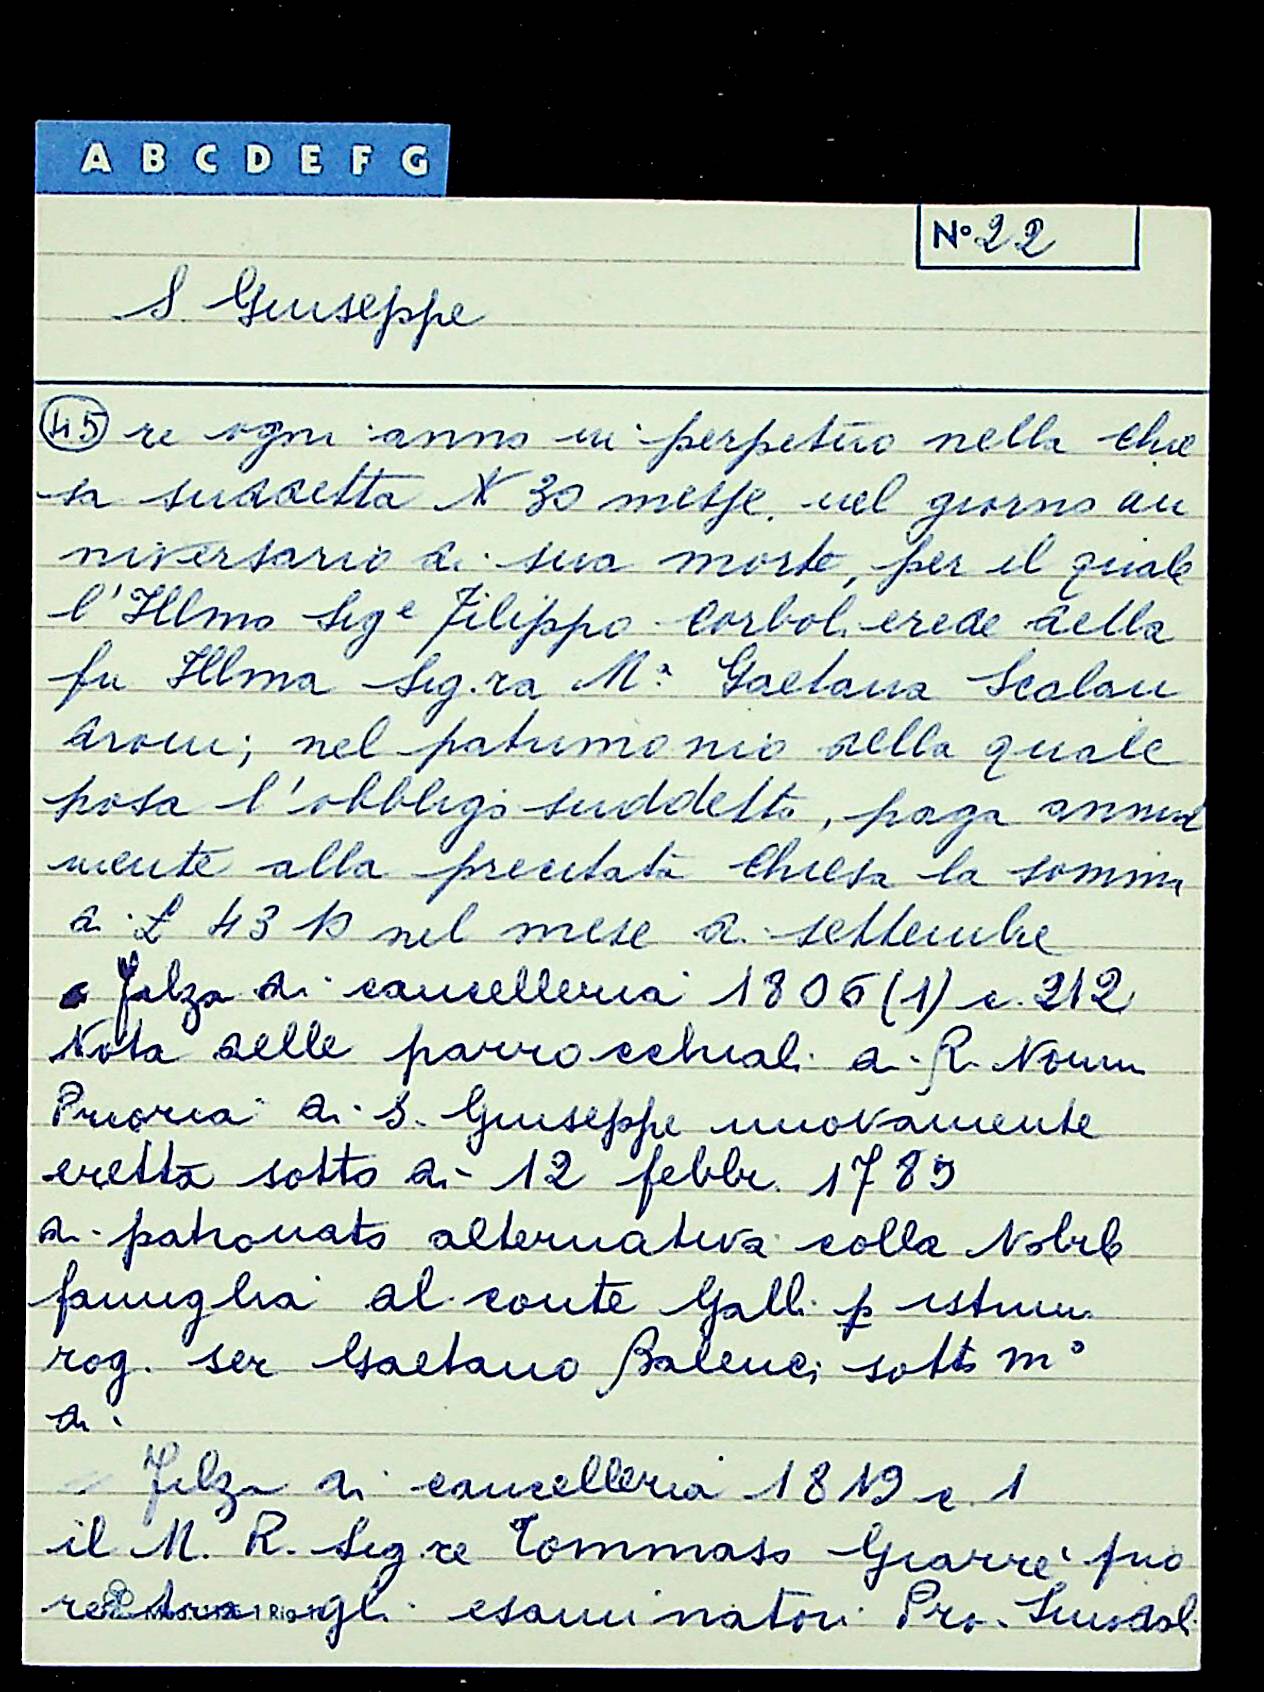 A B C D E F G
Nº 22
S. Giuseppe
45 re ogni anno in perpetuo nella chie
sa suddetta N 30 messe nel giorno an
niversario di sua morte, per il quale
l'Illmo Sigᵉ Filippo Corboli erede della
fu Illma Sig.ra Mª Gaetana Scalan
droni; nel patrimonio della quale
posa l'obbligo suddetto, paga annual
mente alla precitata Chiesa la somma
di £ 43 10 nel mese di settembre
Filza di cancelleria 1806 (1) c. 212
Nota delle parrocchiali di R. Nomin
Prioria di S. Giuseppe nuovamente
eretta sotto di 12 febbr. 1789
di patronato alternativa colla Nobile
famiglia al conte Galli p istrum.
rog. ser Gaetano Balenci sotto m°
di
Filza di cancelleria 1819 c. 1
il M. R. Sig.re Tommaso Giarrè prio
re tra gli esaminatori Pro. Sinodali